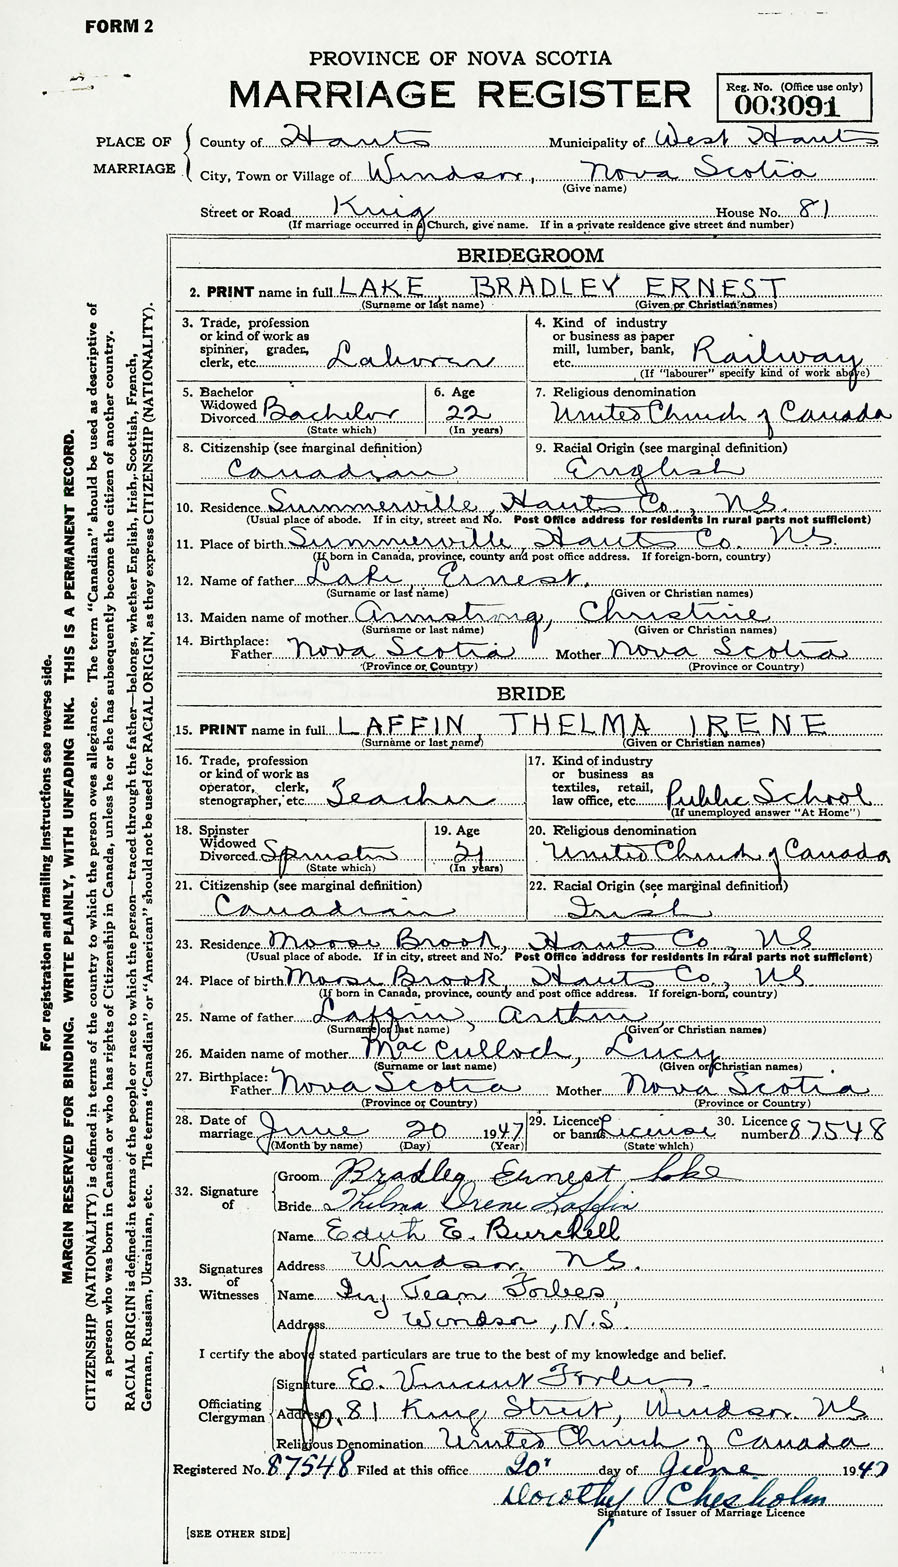 FORM 2
PROVINCE OF NOVA SCOTIA
MARRIAGE REGISTER
Reg. No. (Office use only)
003091
PLACE OF MARRIAGE
County of Hants Municipality of West Hants
City, Town or Village of Windsor, Nova Scotia
(Give name)
Street or Road King House No. 81
(If marriage occurred in a Church, give name. If in a private residence give street and number)
BRIDEGROOM
2. PRINT name in full LAKE, BRADLEY ERNEST
(Surname or last name) (Given or Christian names)
3. Trade, profession or kind of work as spinner, grader, clerk, etc. Laborer
4. Kind of industry or business as paper mill, lumber, bank, etc. Railway
(If "labourer" specify kind of work above)
5. Bachelor Widowed Divorced Bachelor
(State which)
6. Age 22
(In years)
7. Religious denomination
United Church of Canada
8. Citizenship (see marginal definition)
Canadian
9. Racial Origin (see marginal definition)
English
10. Residence Summerville, Hants Co., N.S.
(Usual place of abode. If in city, street and No. Post Office address for residents in rural parts not sufficient)
11. Place of birth Summerville, Hants Co. N.S.
(If born in Canada, province, county and post office address. If foreign-born, country)
12. Name of father Lake, Ernest.
(Surname or last name) (Given or Christian names)
13. Maiden name of mother Armstrong, Christine
(Surname or last name) (Given or Christian names)
14. Birthplace: Father Nova Scotia Mother Nova Scotia
(Province or Country) (Province or Country)
BRIDE
15. PRINT name in full LAFFIN, THELMA IRENE
(Surname or last name) (Given or Christian names)
16. Trade, profession or kind of work as operator, clerk, stenographer, etc. Teacher
17. Kind of industry or business as textiles, retail, law office, etc. Public School
(If unemployed answer "At Home")
18. Spinster Widowed Divorced Spinster
(State which)
19. Age 21
(In years)
20. Religious denomination
United Church of Canada
21. Citizenship (see marginal definition)
Canadian
22. Racial Origin (see marginal definition)
Irish
23. Residence Moose Brook, Hants Co., NS
(Usual place of abode. If in city, street and No. Post Office address for residents in rural parts not sufficient)
24. Place of birth Moose Brook, Hants Co., NS
(If born in Canada, province, county and post office address. If foreign-born, country)
25. Name of father Laffin, Arthur
(Surname or last name) (Given or Christian names)
26. Maiden name of mother MacCulloch, Lucy
(Surname or last name) (Given or Christian names)
27. Birthplace: Father Nova Scotia Mother Nova Scotia
(Province or Country) (Province or Country)
28. Date of marriage June 20 1947
(Month by name) (Day) (Year)
29. Licence or banns License
(State which)
30. Licence number 87548
32. Signature of
Groom Bradley Ernest Lake
Bride Thelma Irene Laffin
33. Signatures of Witnesses
Name Edith E. Burchell
Address Windsor N.S.
Name Jean Forbes,
Address Windsor, N.S.
I certify the above stated particulars are true to the best of my knowledge and belief.
Officiating Clergyman
Signature E. Vincent Forbes.
Address 81 King Street, Windsor NS
Religious Denomination United Church of Canada
Registered No. 87548 Filed at this office 20' day of June 1947
Dorothy Chesholm
Signature of Issuer of Marriage Licence
[SEE OTHER SIDE]
For registration and mailing instructions see reverse side.
MARGIN RESERVED FOR BINDING. WRITE PLAINLY, WITH UNFADING INK. THIS IS A PERMANENT RECORD.
CITIZENSHIP (NATIONALITY) is defined in terms of the country to which the person owes allegiance. The term "Canadian" should be used as descriptive of
a person who was born in Canada or who has rights of Citizenship in Canada, unless he or she has subsequently become the citizen of another country.
RACIAL ORIGIN is defined in terms of the people or race to which the person—traced through the father—belongs, whether English, Irish, Scottish, French,
German, Russian, Ukrainian, etc. The terms "Canadian" or "American" should not be used for RACIAL ORIGIN, as they express CITIZENSHIP (NATIONALITY).